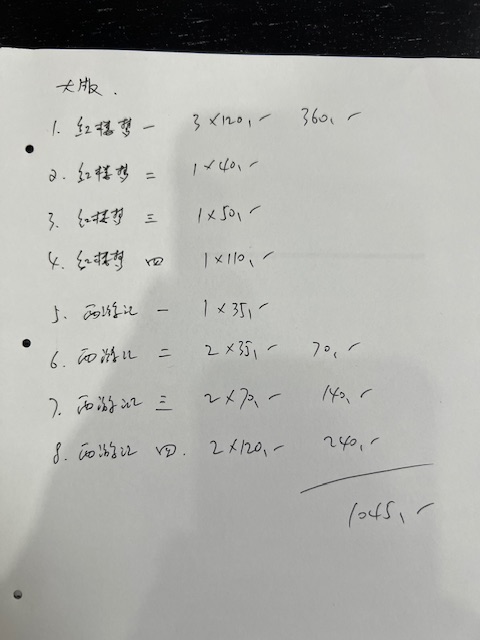 大版.
1. 红楼梦 一 3×120,- 360,-
2. 红楼梦 二 1×40,-
3. 红楼梦 三 1×50,-
4. 红楼梦 四 1×110,-
5. 西游记 一 1×35,-
6. 西游记 二 2×35,- 70,-
7. 西游记 三 2×70,- 140,-
8. 西游记 四. 2×120,- 240,-
1045,-